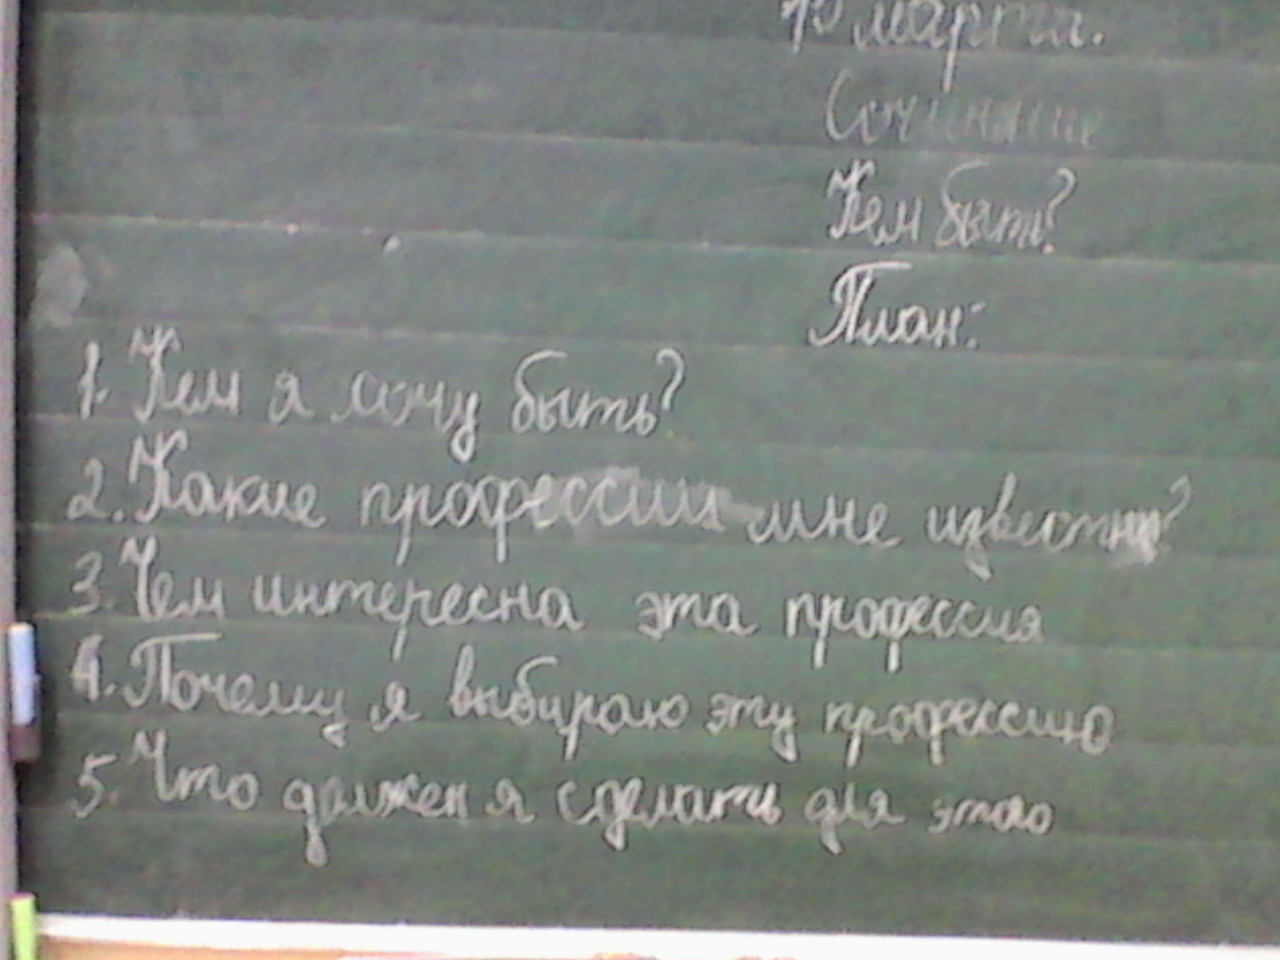 10 марта.
Сочинение
Кем быть?
План:
1. Кем я хочу быть?
2. Какие профессии мне известны?
3. Чем интересна эта профессия
4. Почему я выбираю эту профессию
5. Что должен я сделать для этого